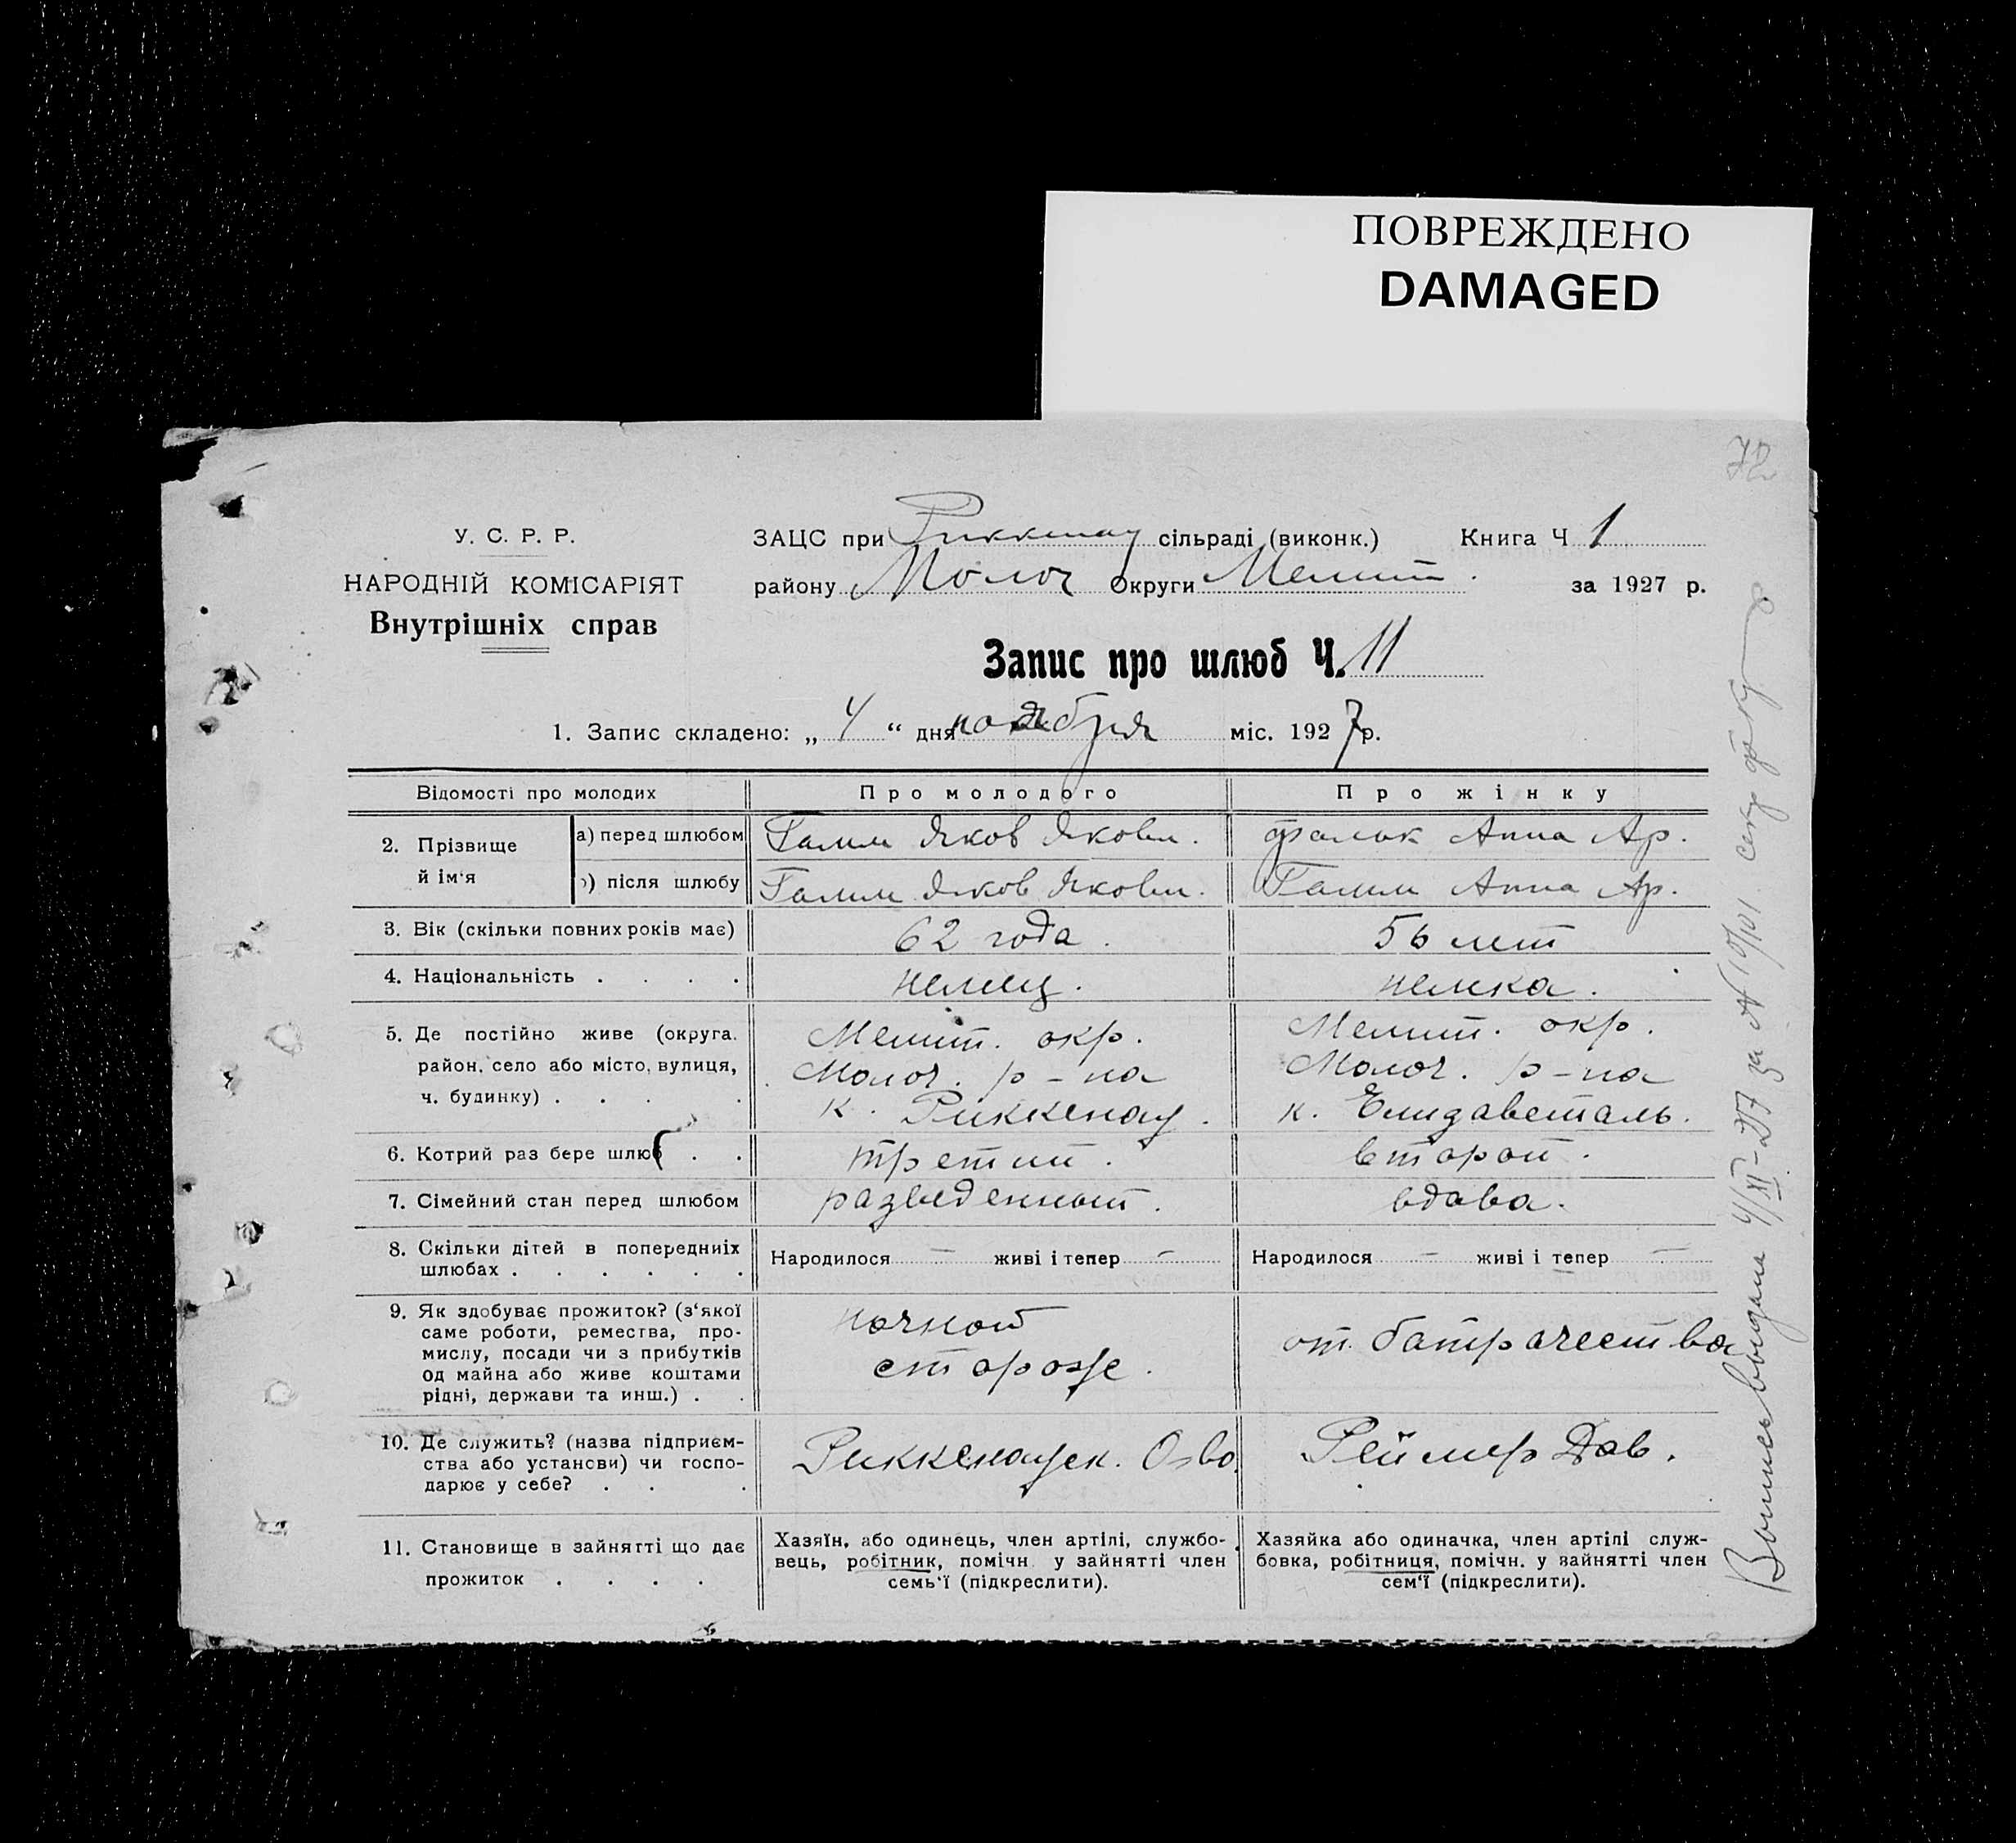 ПОВРЕЖДЕНО
DAMAGED
72
У. С. Р. Р.
НАРОДНІЙ КОМІСАРІЯТ
Внутрішніх справ
ЗАЦС при Риккенау сільраді (виконк.) Книга Ч 1
району Молоч Округи Мелит. за 1927 р.
Запис про шлюб Ч. 11
1. Запис складено: „ 4 “ дня ноября міс. 1927 р.
Відомості про молодих Про молодого Про жінку
2. Прізвище й ім'я
а) перед шлюбом Гамм Яков Яковл. Фальк Анна Ар.
) після шлюбу Гамм Яков Яковл. Гамм Анна Ар.
3. Вік (скільки повних років має) 62 года. 56 лет
4. Національність . . . . немец. немка.
5. Де постійно живе (округа, район, село або місто, вулиця, ч. будинку) . . . .
Мелит. окр.
Молоч. р-на
к. Риккенау.
Мелит. окр.
Молоч. р-на
к. Елизаветаль.
6. Котрий раз бере шлюб . . третий. второй.
7. Сімейний стан перед шлюбом разведенный. вдова.
8. Скільки дітей в попередниіх шлюбах . . . . . .
Народилося — живі і тепер —
Народилося — живі і тепер —
9. Як здобуває прожиток? (з'якої
саме роботи, ремества, про-
мислу, посади чи з прибутків
од майна або живе коштами
рідні, держави та инш.) . .
ночной
стороже.
от батрачества
10. Де служить? (назва підприєм-
ства або установи) чи госпо-
дарює у себе? . . .
Риккенауск. О-во.
Реймер Дав.
11. Становище в зайнятті що дає
прожиток . . . .
Хазяїн, або одинець, член артілі, службо-
вець, робітник, помічн. у зайнятті член
семь'ї (підкреслити).
Хазяйка або одиначка, член артілі служ-
бовка, робітниця, помічн. у зайнятті член
сем'ї (підкреслити).
Выпись выдана 4/XI-27 за №